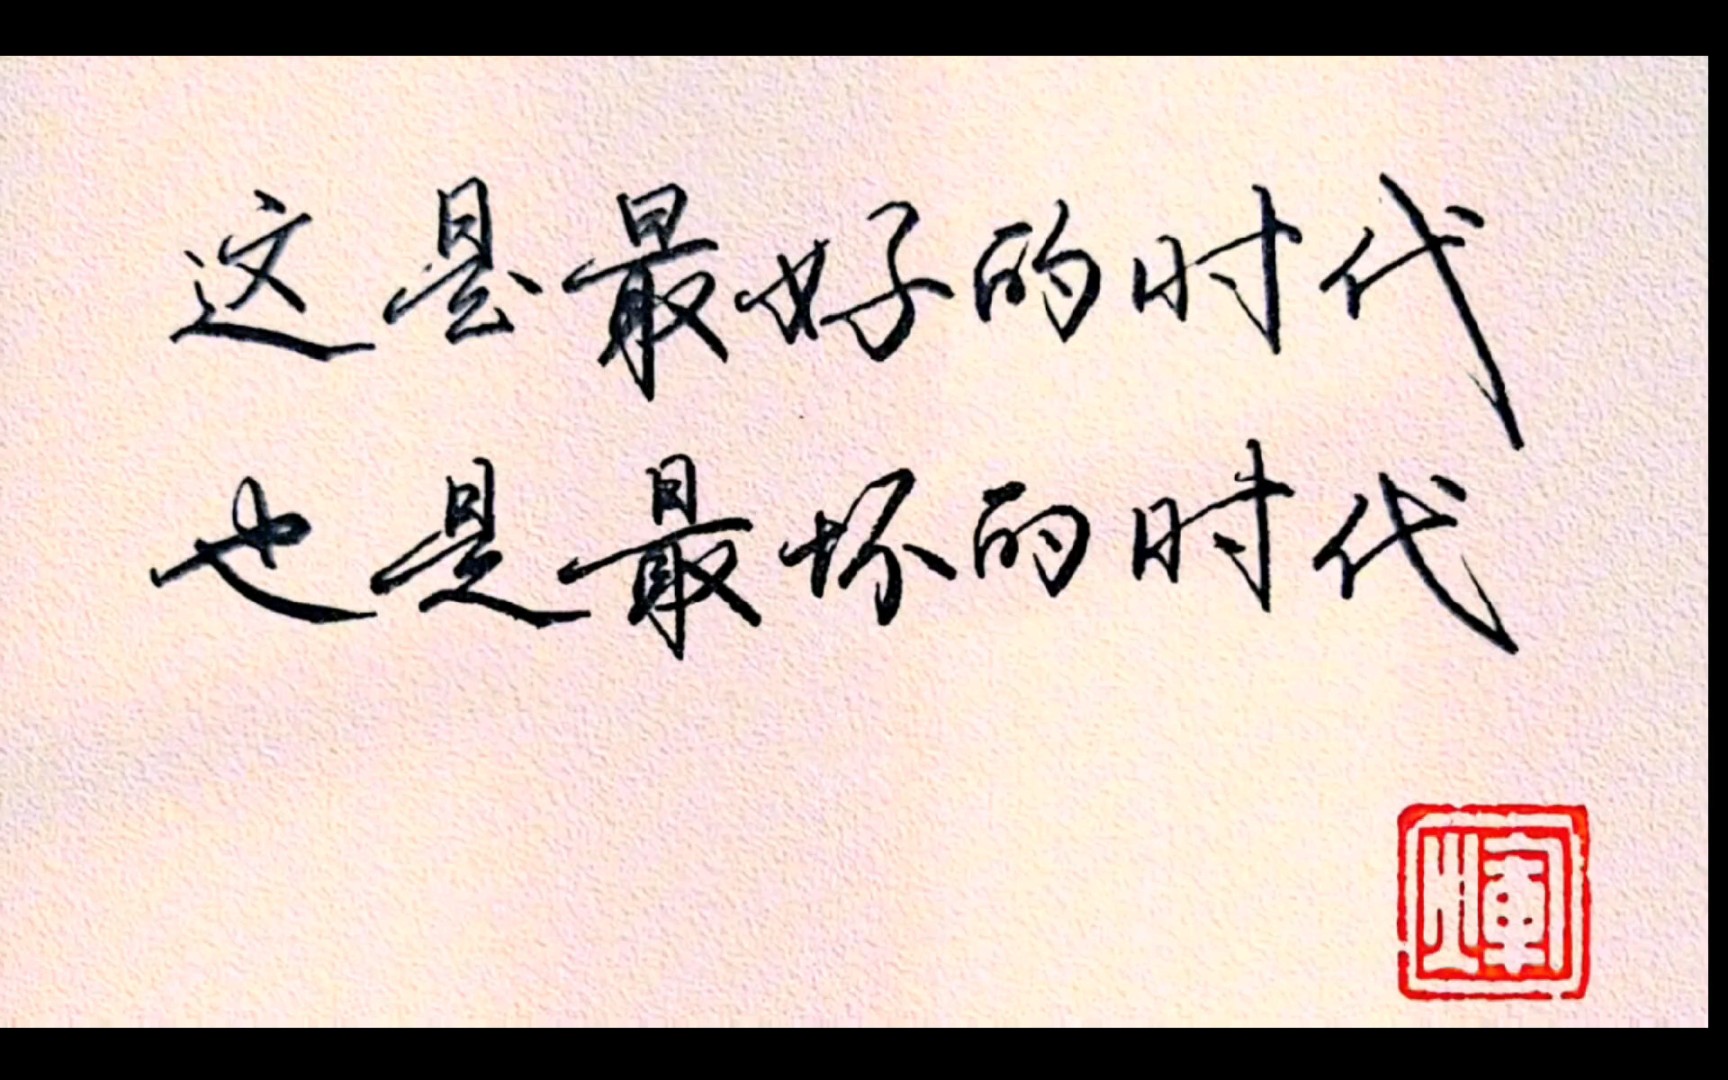 这是最好的时代
也是最坏的时代
煇